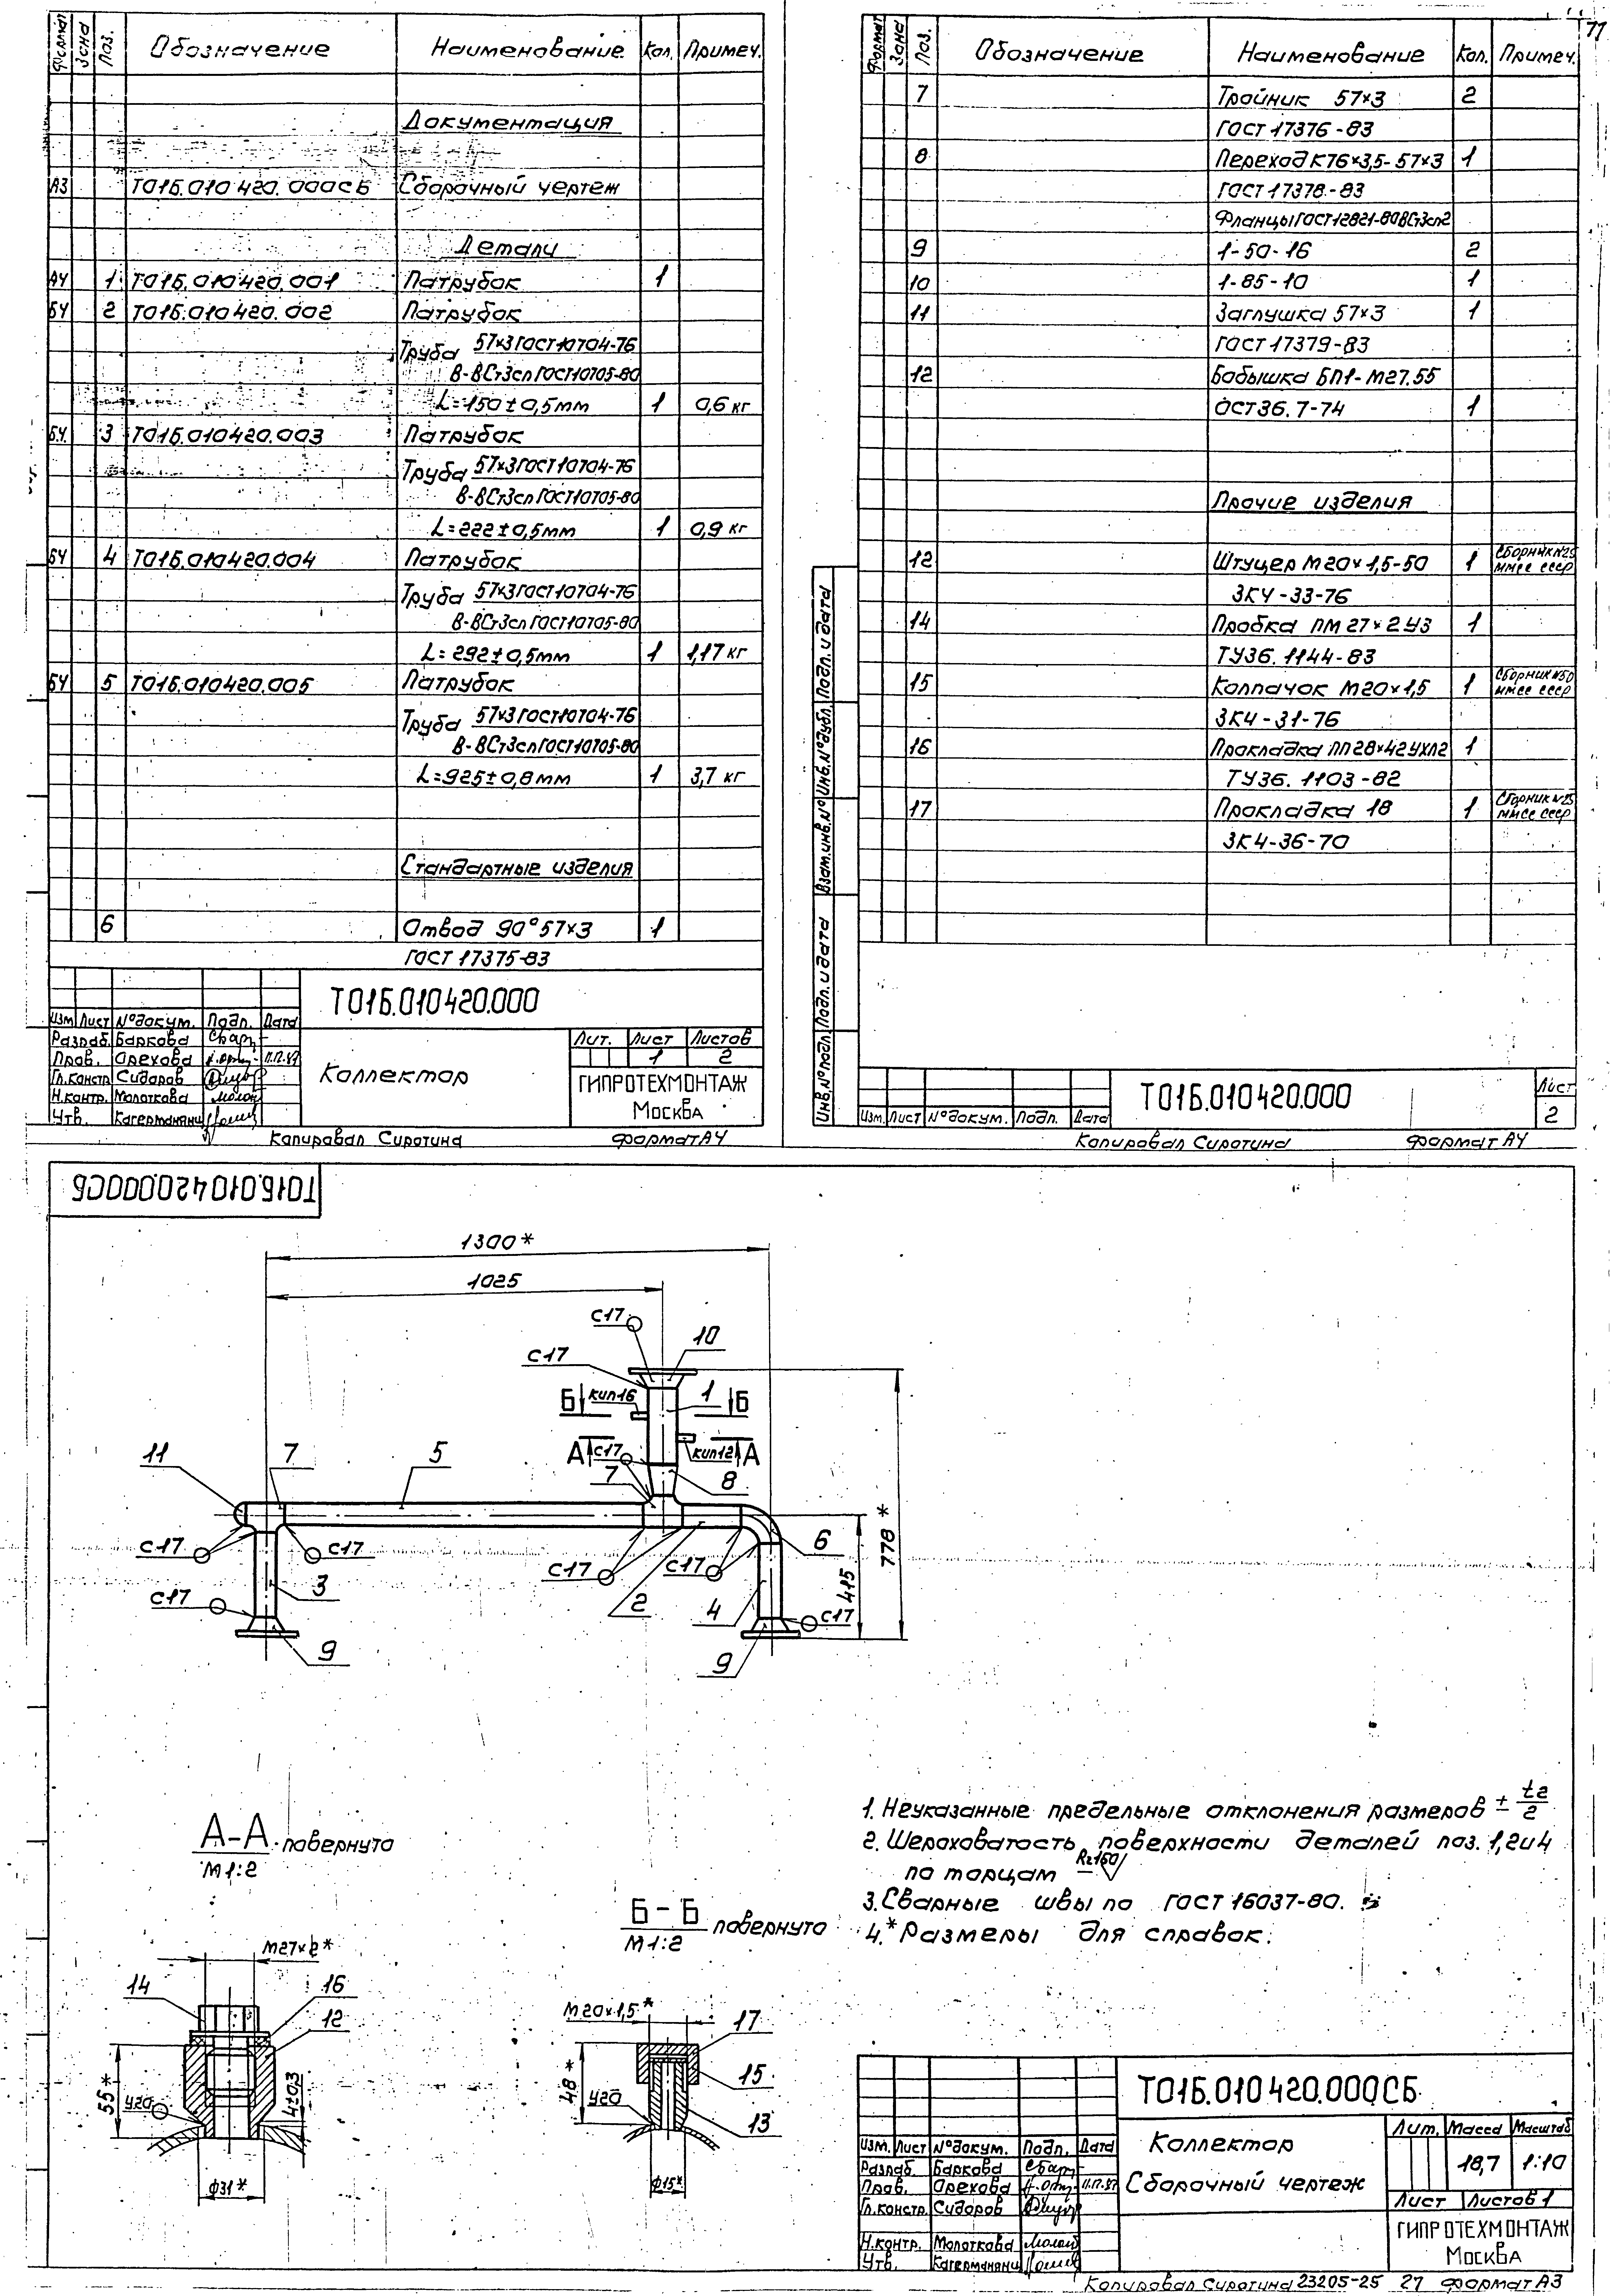 Формат Зона Поз. Обозначение Наименование Кол. Примеч.
Документация
А3 Т01Б.010420.000СБ Сборочный чертеж
Детали
А4 1 Т01Б.010420.001 Патрубок 1
БЧ 2 Т01Б.010420.002 Патрубок
Труба 57×3 ГОСТ 10704-76
В-ВСт3сп ГОСТ 10705-80
L=150±0,5мм 1 0,6 кг
БЧ 3 Т01Б.010420.003 Патрубок
Труба 57×3 ГОСТ 10704-76
В-ВСт3сп ГОСТ 10705-80
L=222±0,5мм 1 0,9 кг
БЧ 4 Т01Б.010420.004 Патрубок
Труба 57×3 ГОСТ 10704-76
В-ВСт3сп ГОСТ 10705-80
L=292±0,5мм 1 1,17 кг
БЧ 5 Т01Б.010420.005 Патрубок
Труба 57×3 ГОСТ 10704-76
В-ВСт3сп ГОСТ 10705-80
L=925±0,8мм 1 3,7 кг
Стандартные изделия
6 Отвод 90° 57×3 1
ГОСТ 17375-83
Т01Б.010420.000
Изм. Лист № докум. Подп. Дата
Разраб. Баркова
Пров. Орехова
Гл.констр. Сидоров
Н.контр. Молоткова
Утв.
Коллектор
Лит. Лист Листов
1 2
ГИПРОТЕХМОНТАЖ
Москва
Копировал Сиротина Формат А4
77
Формат Зона Поз. Обозначение Наименование Кол. Примеч.
7 Тройник 57×3 2
ГОСТ 17376-83
8 Переход К76×3,5-57×3 1
ГОСТ 17378-83
Фланцы ГОСТ 12821-80 ВСт3сп2
9 1-50-16 2
10 1-85-10 1
11 Заглушка 57×3 1
ГОСТ 17379-83
12 Бобышка БП1-М27.55
ОСТ 36.7-74 1
Прочие изделия
12 Штуцер М20×1,5-50 1 Сборник №25 ММСС СССР
ЗК4-33-76
14 Пробка ПМ 27×2 У3 1
ТУ36.1144-83
15 Колпачок М20×1,5 1 Сборник №50 ММСС СССР
ЗК4-31-76
16 Прокладка ПП28×42 УХЛ2 1
ТУ36.1103-82
17 Прокладка 18 1 Сборник №25 ММСС СССР
ЗК4-36-70
Инв.№ подл. Подп. и дата Взам.инв.№ Инв.№ дубл. Подп. и дата
Изм. Лист № докум. Подп. Дата
Т01Б.010420.000
Лист
2
Копировал Сиротина Формат А4
Т01Б.010420.000СБ
1300*
1025
С17
10
С17
Б кип16 1 Б
А С17 кип12 А
11 7 5 7 8
778*
6
С17 С17 С17 С17
415
С17 3 2 4 С17
9 9
А-А повернуто
М1:2
Б-Б повернуто
М1:2
1. Неуказанные предельные отклонения размеров ± t2/2
2. Шероховатость поверхности деталей поз. 1,2и4
по торцам Rz160
3. Сварные швы по ГОСТ 16037-80.
4.* Размеры для справок.
М27×2*
14 16
12
55*
У20
4±0,3
Ф31*
М20×1,5*
17
48*
15
У20
13
Ф15*
Т01Б.010420.000СБ
Изм. Лист № докум. Подп. Дата
Разраб. Баркова
Пров. Орехова
Гл.констр. Сидоров
Н.контр. Молоткова
Утв.
Коллектор
Сборочный чертеж
Лит. Масса Масштаб
18,7 1:10
Лист Листов 1
ГИПРОТЕХМОНТАЖ
Москва
Копировал Сиротина 23205-25 27 Формат А3